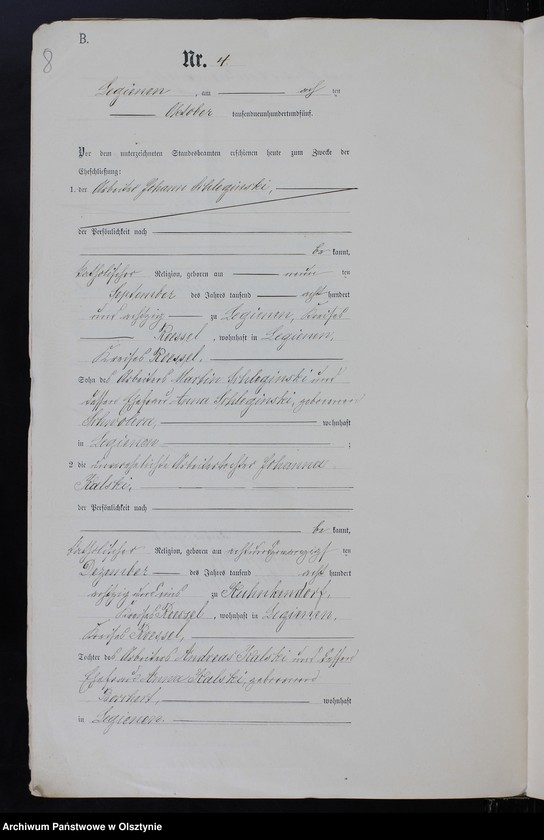 B.
8
Nr. 4
Legienen, am acht ten
Oktober tausendneunhundertundfünf.
Vor dem unterzeichneten Standesbeamten erschienen heute zum Zwecke der
Eheschließung:
1. der Arbeiter Johann Schleginski,
der Persönlichkeit nach
be kannt,
katholischer Religion, geboren am neun ten
September des Jahres tausend acht hundert
und achtzig zu Legienen, Kreises
Roessel, wohnhaft in Legienen,
Kreises Roessel,
Sohn des Arbeiters Martin Schleginski und
dessen Ehefrau Anna Schleginski, geborenen
wohnhaft
in Legienen ;
2. die unverehelichte Arbeitertochter Johanna
Kalski,
der Persönlichkeit nach
be kannt,
katholischer Religion, geboren am achtundzwanzigsten ten
Dezember des Jahres tausend acht hundert
achtzig und eins zu
Kreises Roessel, wohnhaft in Legienen,
Kreises Roessel,
Tochter des Arbeiters Andreas Kalski und dessen
Ehefrau Anna Kalski, geborenen
Borchert, wohnhaft
in Legienen.
Archiwum Państwowe w Olsztynie